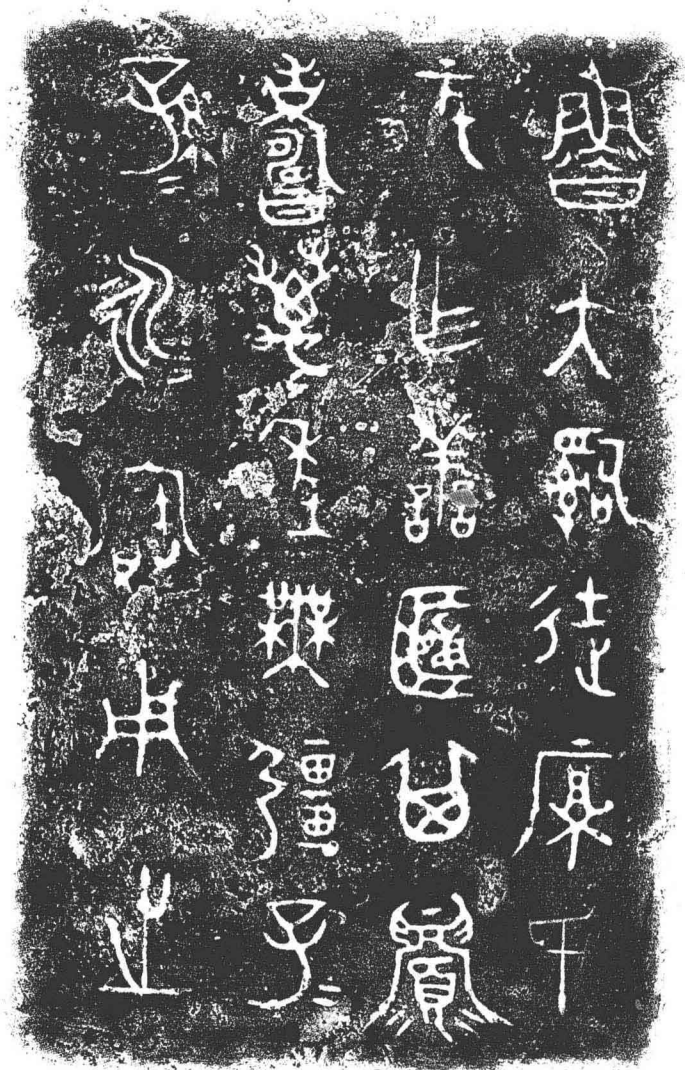 魯大𤔲徒厚氏
元乍譱匿其眉
壽萬年無彊子＝
孫＝永寶用之